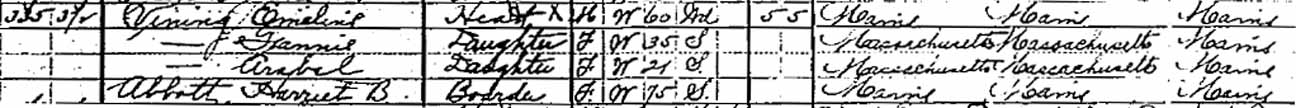 335 Vining, Emeline Head X W 60 Wd 5 5 Maine Maine Maine
— Fannie Daughter F W 35 S Massachusetts Massachusetts Maine
— Arabel Daughter F W 21 S Massachusetts Massachusetts Maine
Abbott, Harriet B. Boarder F W 75 S Maine Maine Maine